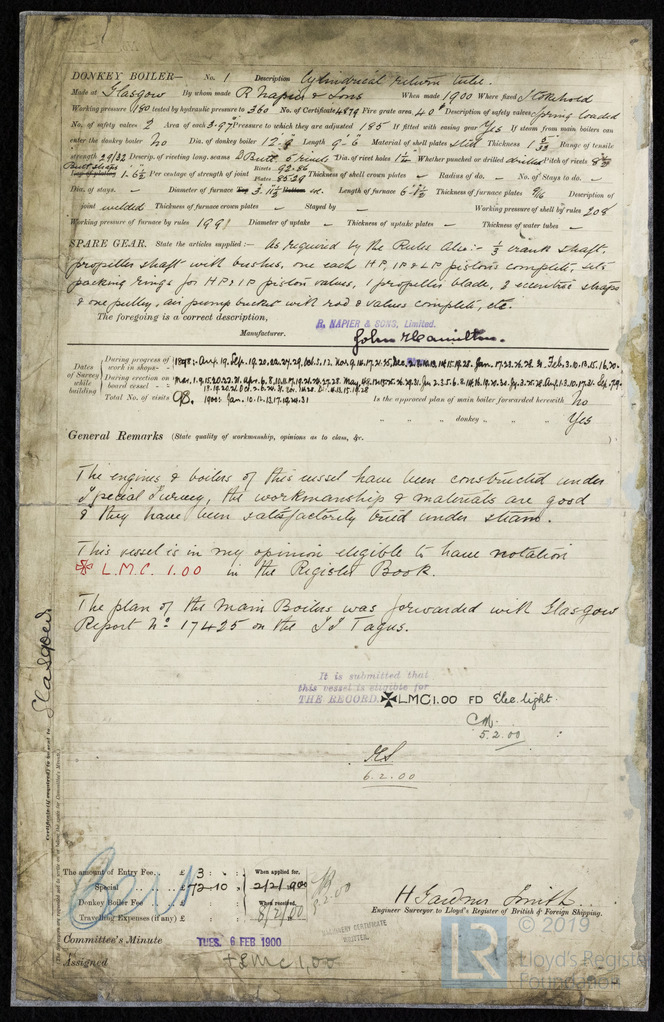 DONKEY BOILER— No. 1 Description Cylindrical return tube.
Made at Glasgow By whom made R Napier & Sons When made 1900 Where fixed Stokehold
Working pressure 180 tested by hydraulic pressure to 360 No. of Certificate 4879 Fire grate area 40 Description of safety valves Spring loaded
No. of safety valves 2 Area of each 3.97 Pressure to which they are adjusted 185 If fitted with easing gear Yes If steam from main boilers can
enter the donkey boiler No Dia. of donkey boiler 12.9 Length 9-6 Material of shell plates steel Thickness Range of tensile
strength 29/32 Descrip. of riveting long. seams D Butt 5 rivets Dia. of rivet holes Whether punched or drilled drilled Pitch of rivets
Lap of plating Per centage of strength of joint Rivets 92.86 Plates 85.29 Thickness of shell crown plates – Radius of do. – No. of Stays to do. –
Dia. of stays. – Diameter of furnace Top Bottom Length of furnace Thickness of furnace plates 9/16 Description of
joint welded Thickness of furnace crown plates – Stayed by – Working pressure of shell by rules 208
Working pressure of furnace by rules 199 Diameter of uptake – Thickness of uptake plates – Thickness of water tubes –
SPARE GEAR. State the articles supplied:— As required by the Rules Also:- 1/3 crank shaft.
propeller shaft with bushes, one each HP, IP & LP pistons complete, sets
packing rings for HP & IP piston valves, 1 propeller blade, 2 eccentric straps
& one pulley, air pump bucket with rod & valves complete, etc.
The foregoing is a correct description,
R. NAPIER & SONS, Limited.
Manufacturer. John Hamilton.
Dates of Survey while building
During progress of work in shops--
During erection on board vessel--
Total No. of visits 98. 1900: Jan. 10.12.13.17.19.24.31
Is the approved plan of main boiler forwarded herewith No
" " " donkey " " " Yes
General Remarks (State quality of workmanship, opinions as to class, &c.
The engines & boilers of this vessel have been constructed under
Special Survey, the workmanship & materials are good
& they have been satisfactorily tried under steam.
This vessel is in my opinion eligible to have notation
✠ L.M.C. 1.00 in the Register Book.
The plan of the Main Boilers was forwarded with Glasgow
Report No. 17425 on the SS Tagus.
Glasgow
It is submitted that
this vessel is eligible for
THE RECORD. ✠ LMC 1.00 FD Elec. light.
5.2.00
6.2.00
The amount of Entry Fee.. £ 3 : : When applied for,
Special £ 72.10 : 2/2/1900
Donkey Boiler Fee £ : : When received,
Travelling Expenses (if any) £ : : 8/2/00
H Gardner Smith
Engineer Surveyor to Lloyd's Register of British & Foreign Shipping.
MACHINERY CERTIFICATE
WRITTEN.
Committee's Minute TUES. 6 FEB 1900
Assigned + LMC 1,00
© 2019
LR Lloyd's Register
Foundation